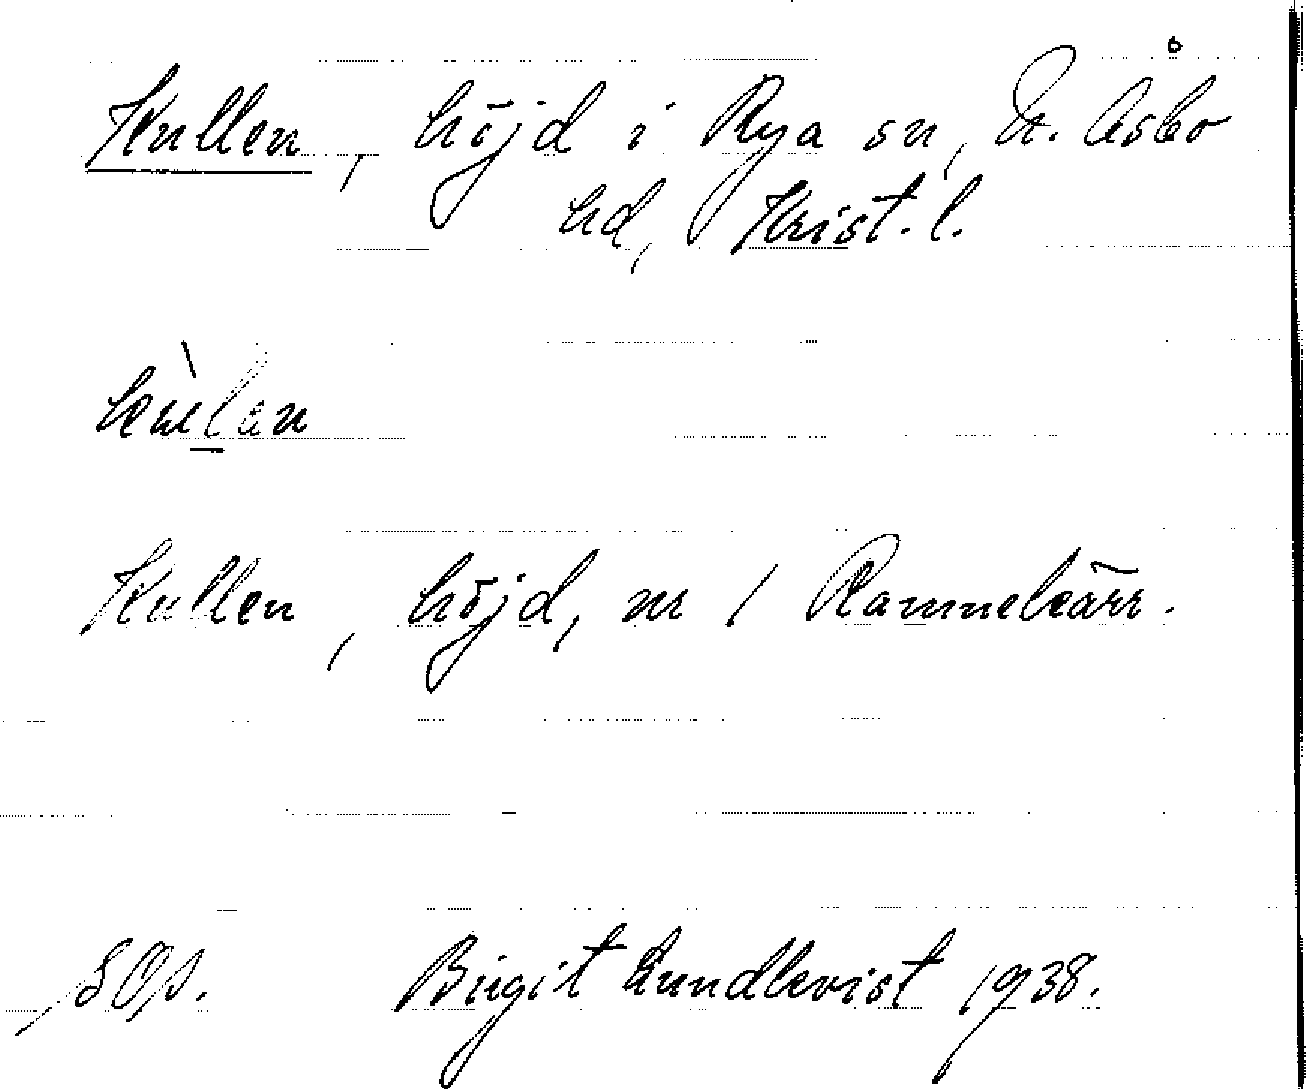 Kullen, höjd i Rya sn, N. Åsbo
hd, Krist. l.
Kullen, höjd, nr 1 Rammekärr.
SOp. Birgit Lundkvist 1938.